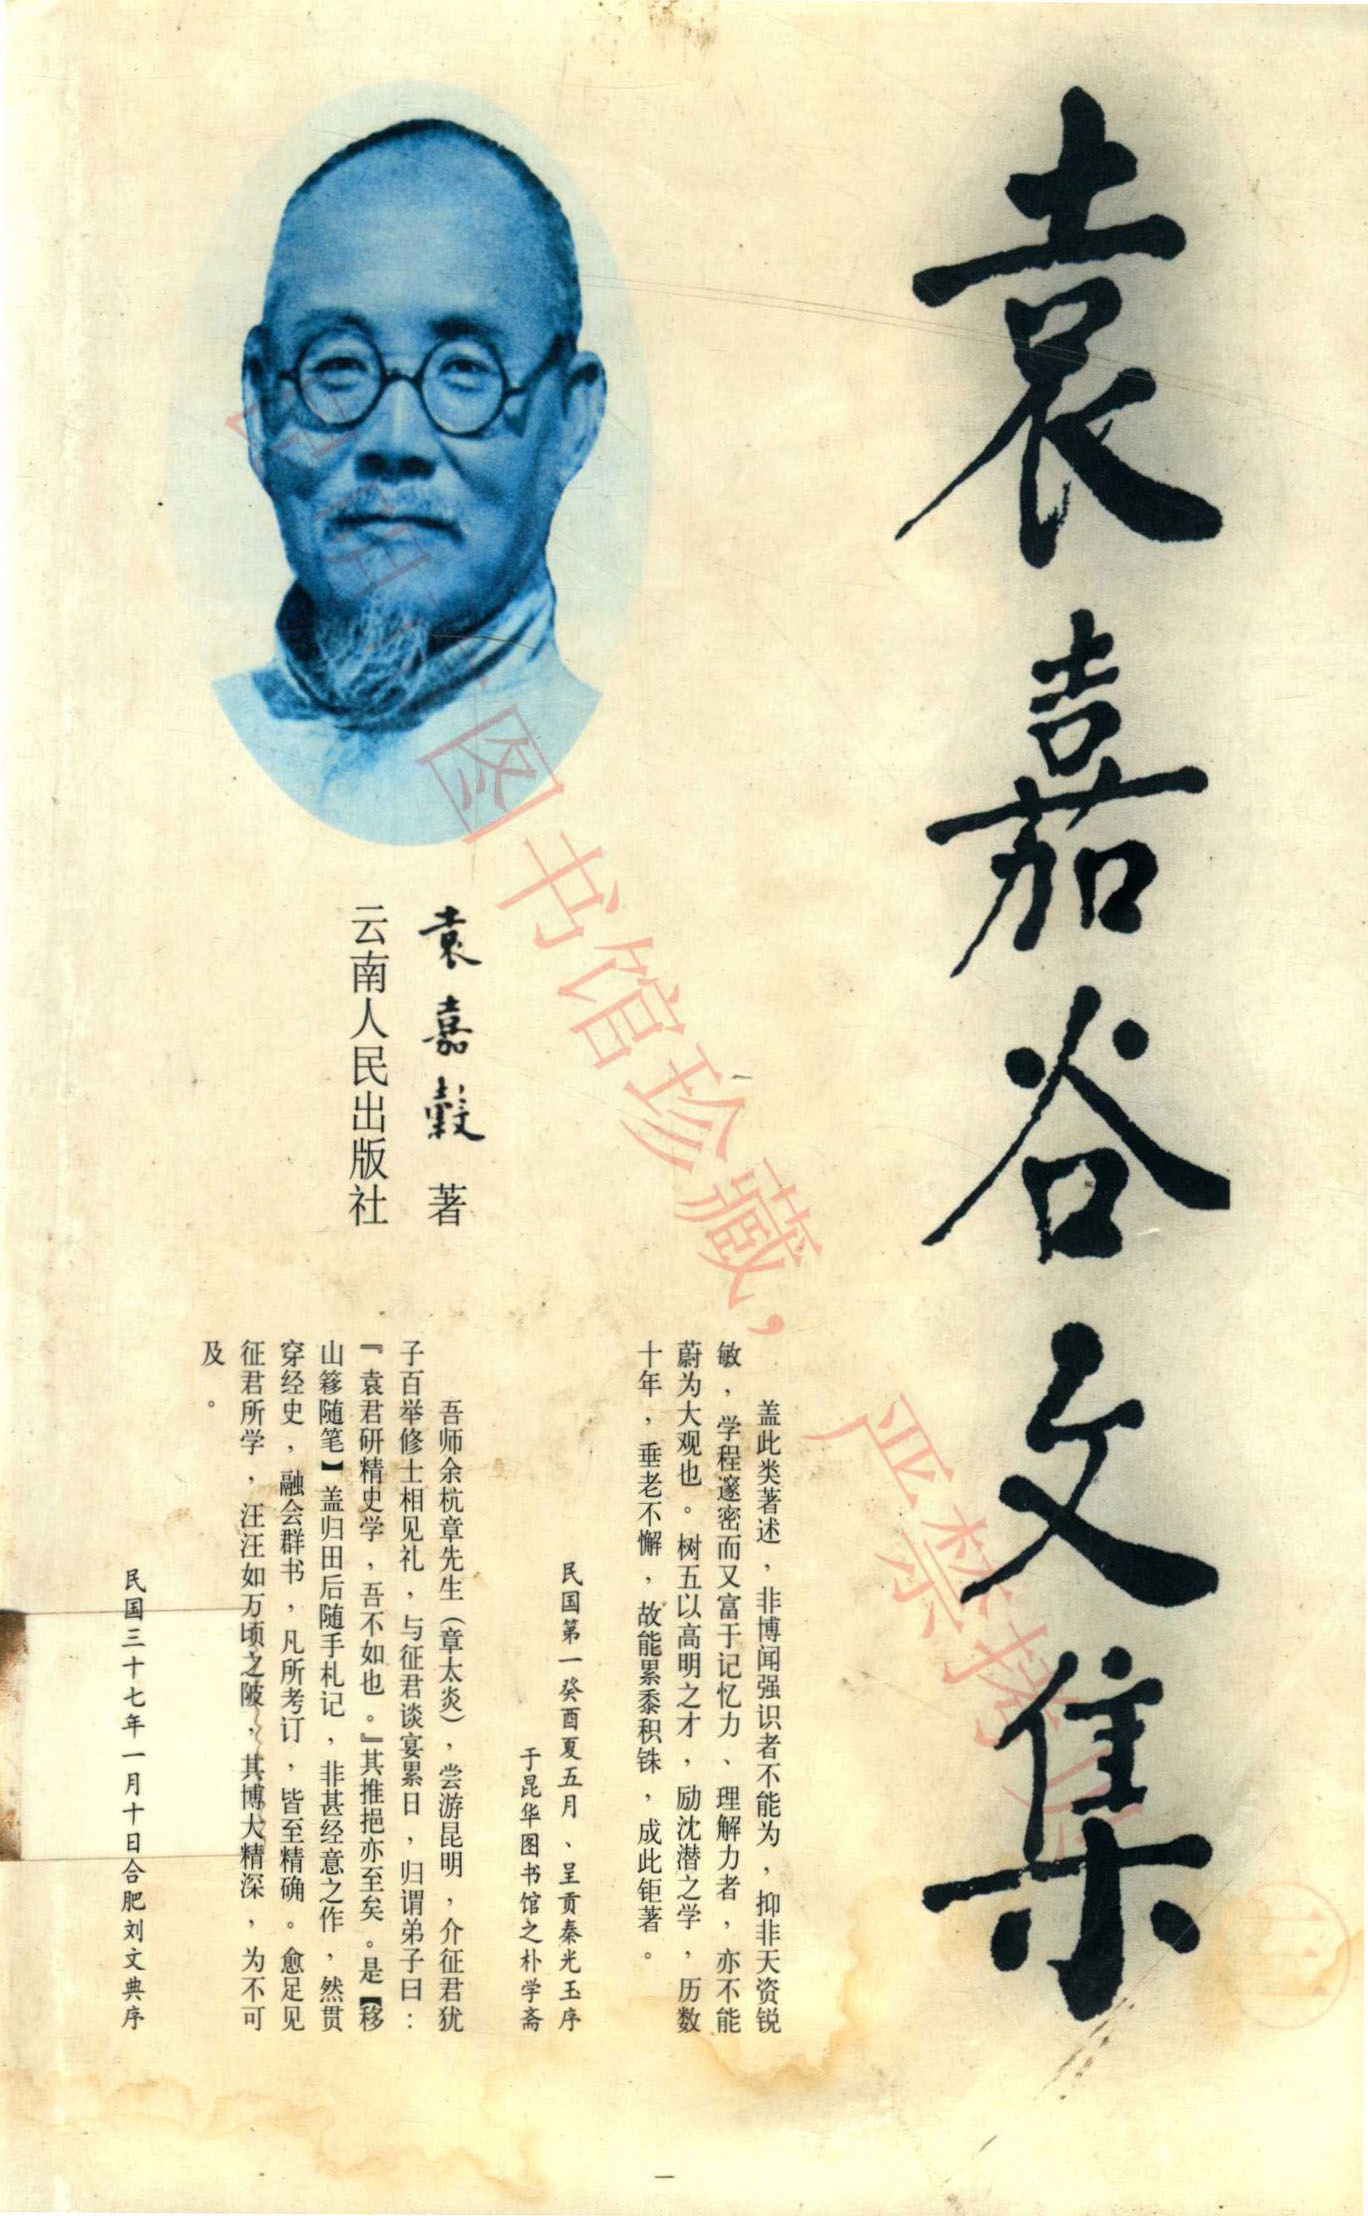 袁嘉谷文集
三
盖此类著述，非博闻强识者不能为，抑非天资锐
敏，学程邃密而又富于记忆力、理解力者，亦不能
蔚为大观也。树五以高明之才，励沈潜之学，历数
十年，垂老不懈，故能累黍积铢，成此钜著。
民国第一癸酉夏五月、呈贡秦光玉序
于昆华图书馆之朴学斋
袁嘉穀 著
云南人民出版社
吾师余杭章先生（章太炎），尝游昆明，介征君犹
子百举修士相见礼，与征君谈宴累日，归谓弟子曰：
『袁君研精史学，吾不如也。』其推挹亦至矣。是【移
山簃随笔】盖归田后随手札记，非甚经意之作，然贯
穿经史，融会群书，凡所考订，皆至精确。愈足见
征君所学，汪汪如万顷之陂，其博大精深，为不可
及。
民国三十七年一月十日合肥刘文典序
图书馆珍藏，严禁